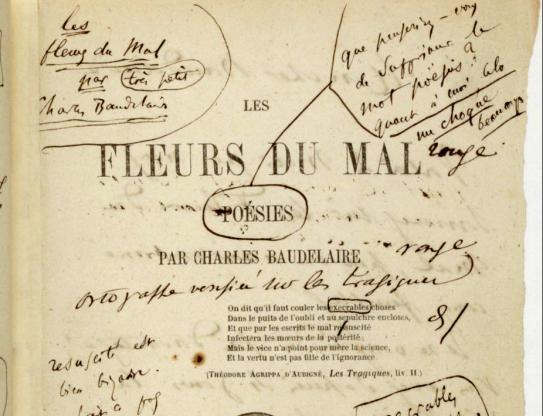 les
fleurs du Mal
par très petit
Charles Baudelaire
que penseriez-vous
de supprimer le
mot poësies ?
quant à moi cela
me choque
beaucoup
LES
FLEURS DU MAL
rouge
POÉSIES
PAR CHARLES BAUDELAIRE
rouge
ortographe verifiée sur les tragiques
On dit qu'il faut couler les execrables choses
Dans le puits de l'oubli et au sepulchre encloses,
Et que par les escrits le mal resuscité
Infectera les mœurs de la postérité ;
Mais le vice n'a point pour mère la science,
Et la vertu n'est pas fille de l'ignorance.
(THÉODORE AGRIPPA D'AUBIGNÉ, Les Tragiques, liv. II.)
resuscité est
bien bizarre.